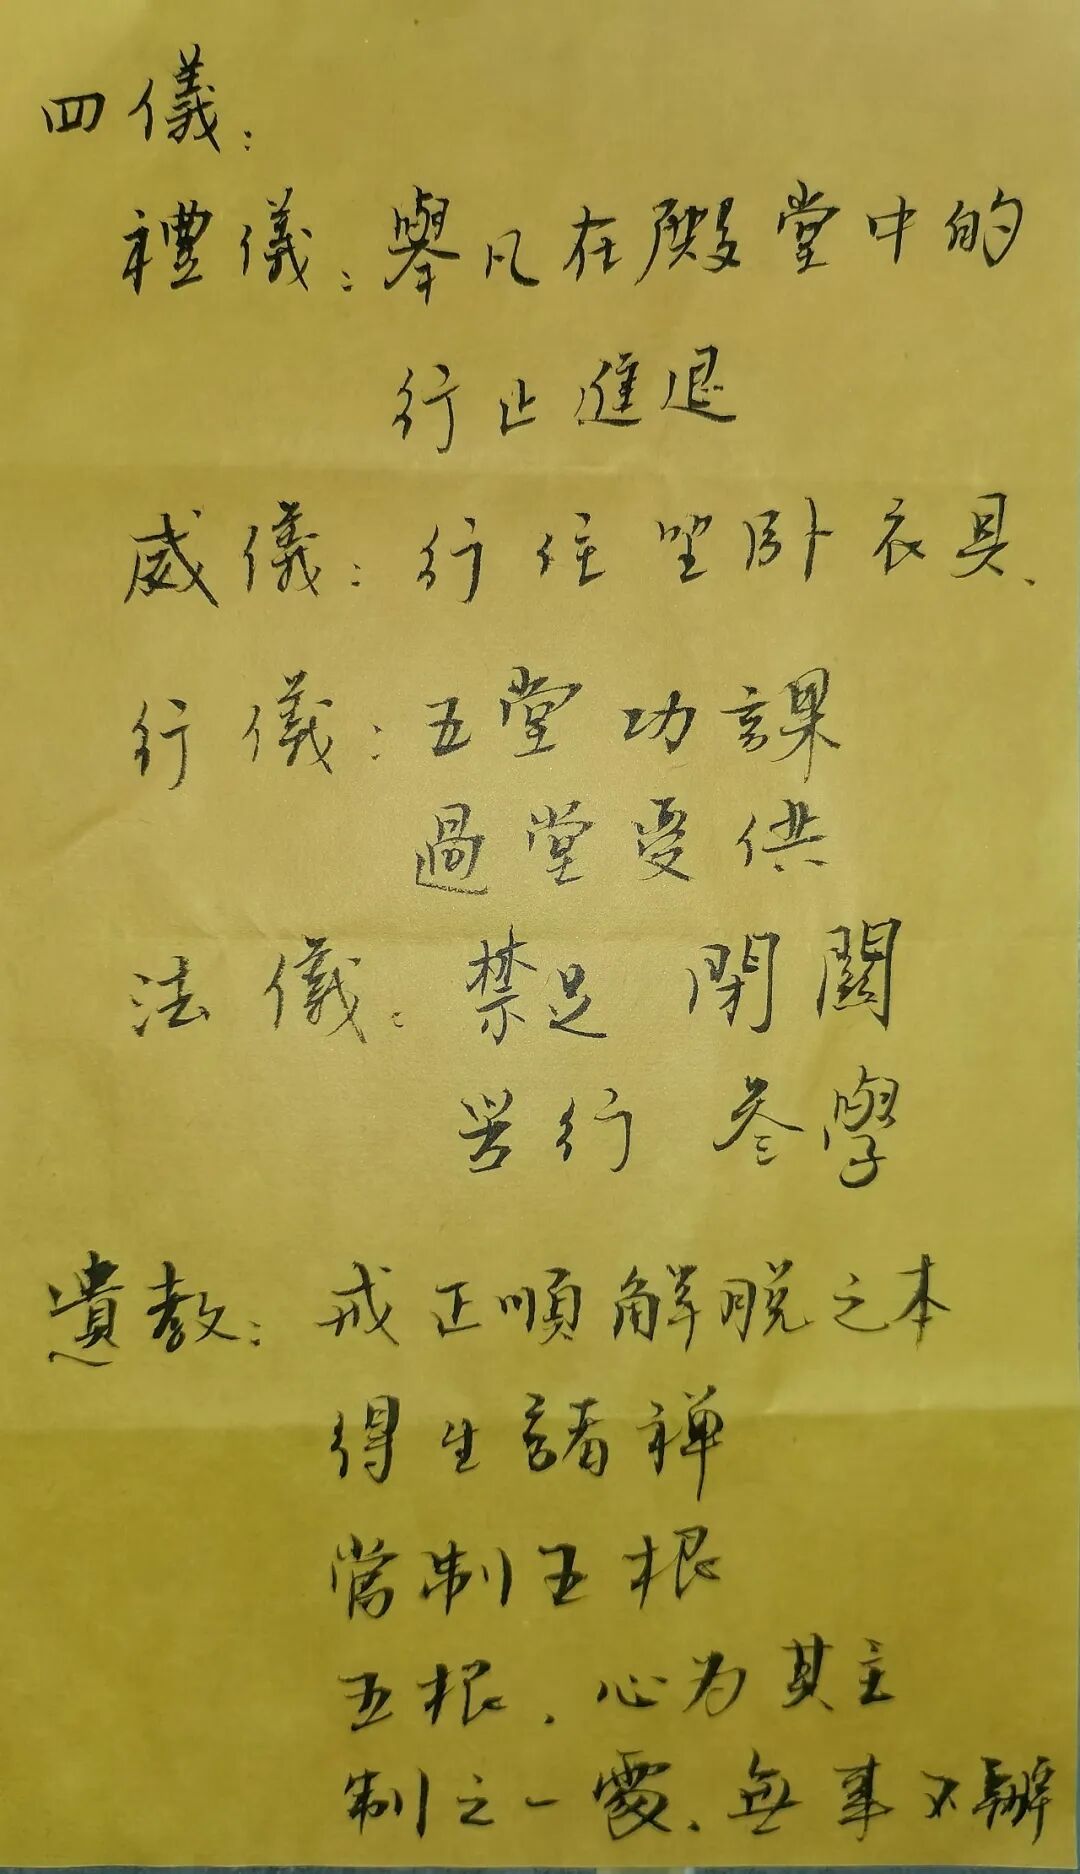 四儀：
禮儀：舉凡在殿堂中的
行止進退
威儀：行住坐卧衣具、
行儀：五堂功課
過堂受供
法儀：禁足 閉關
苦行 參學
遺教：戒正順解脱之本
得生諸禅
當制五根
五根、心为其主
制之一處、無事不辦